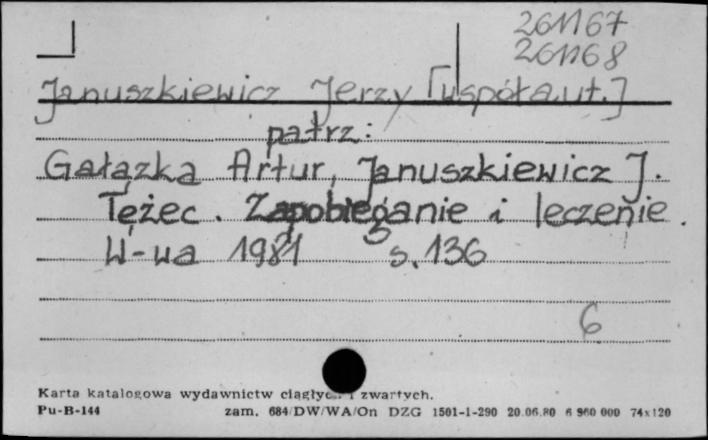 261167
261168
Januszkiewicz Jerzy [współaut.]
patrz:
Gałązka Artur, Januszkiewicz J.
Tężec. Zapobieganie i leczenie.
W-wa 1981 s. 136
6
Karta katalogowa wydawnictw ciągłych i zwartych.
Pu-B-144 zam. 684/DW/WA/On DZG 1501-1-290 20.06.80 6 960 000 74x120